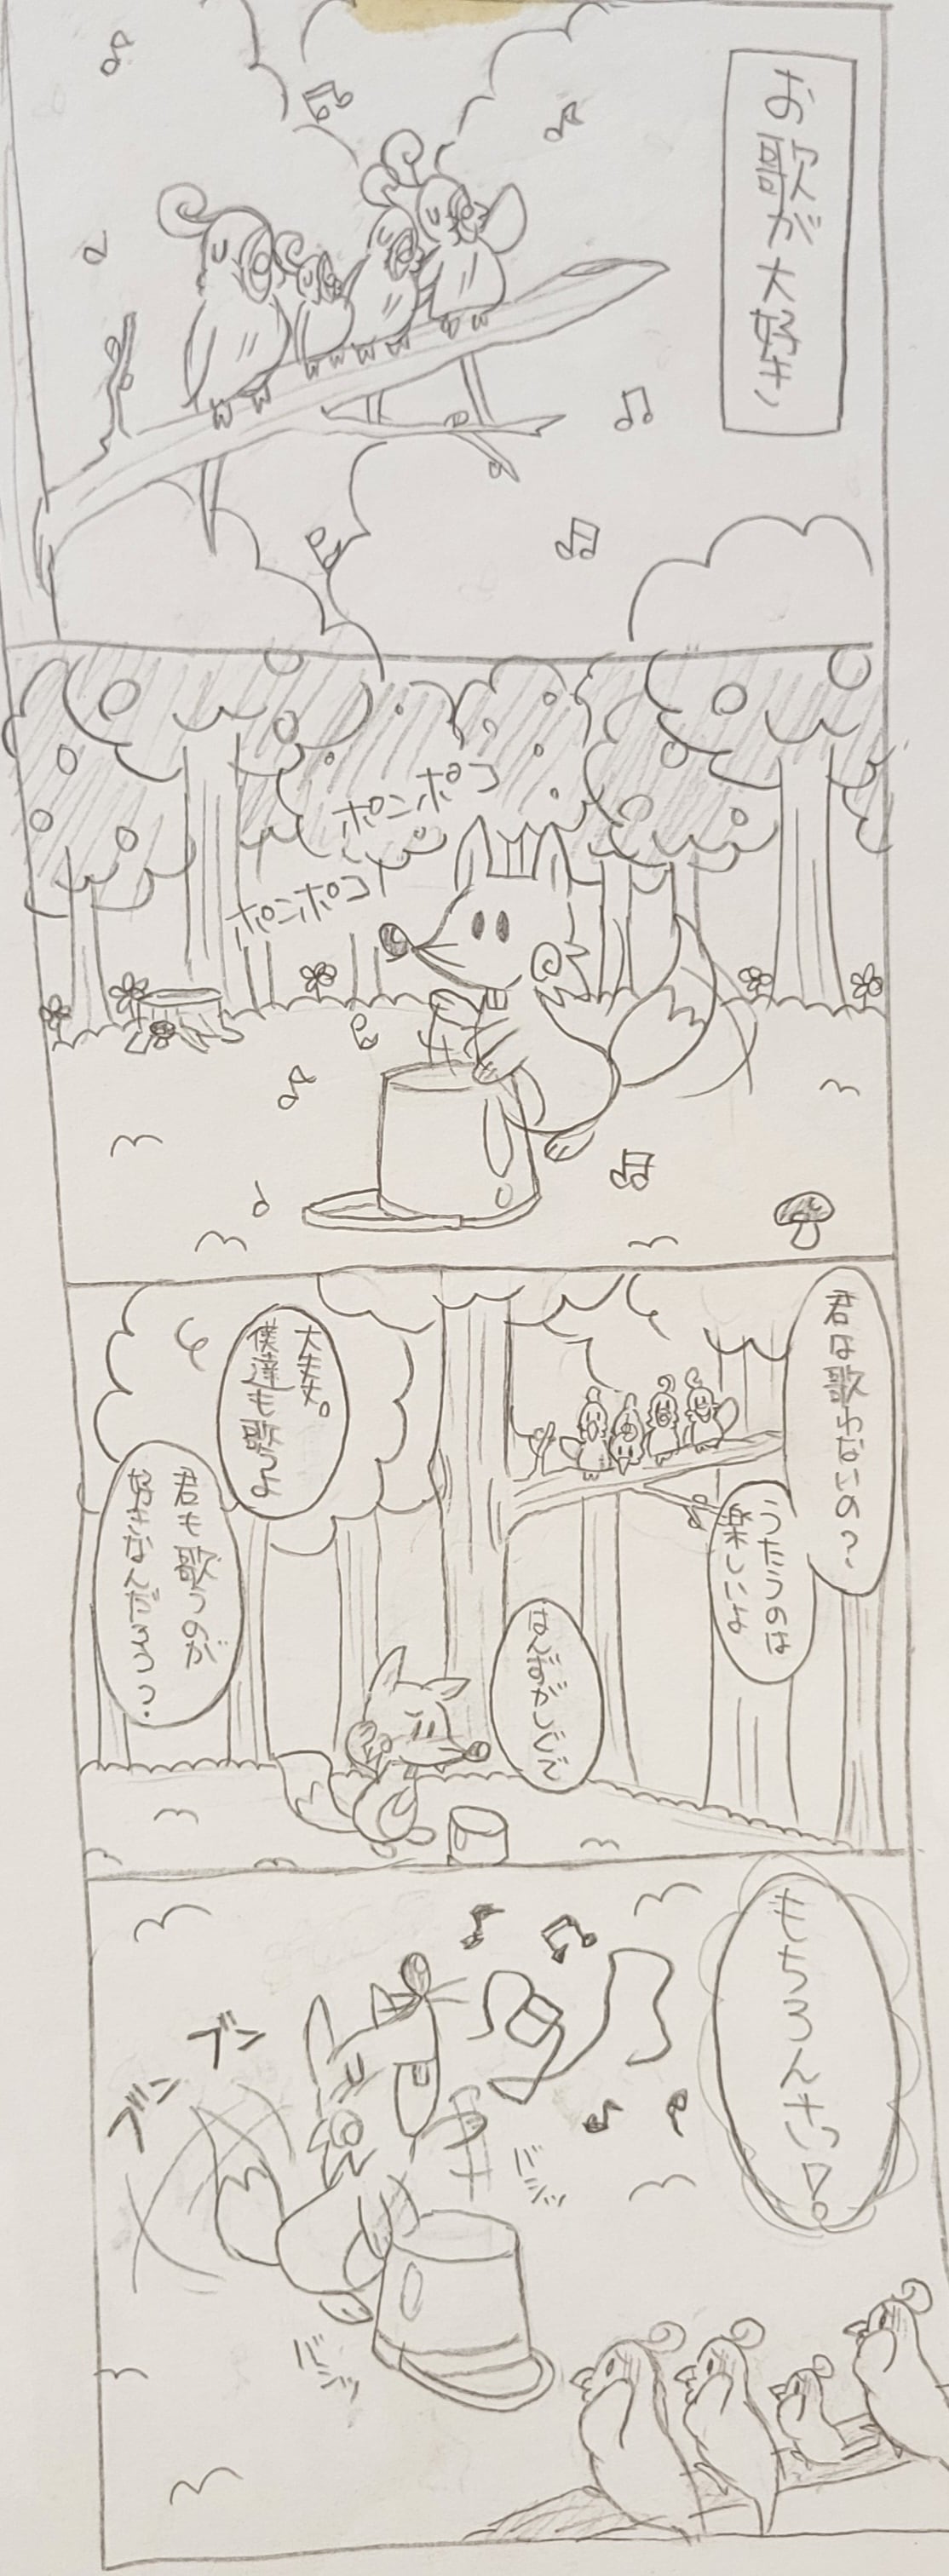 お歌が大好き
ポンポコ
ポンポコ
君は歌わないの?
うたうのは
楽しいよ
はんだがいじん
大丈夫。
僕達も歌うよ
君も歌うのが
好きなんだろう?
もちろんさっ!。
ブン
ブン
バシッ
バシッ